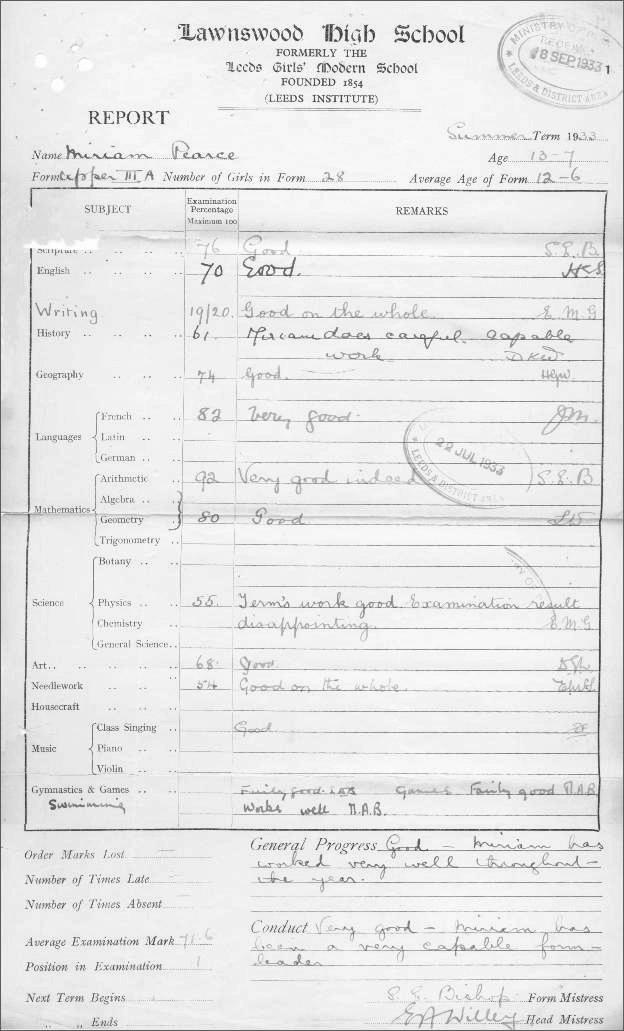 Lawnswood High School
FORMERLY THE
Leeds Girls' Modern School
FOUNDED 1854
(LEEDS INSTITUTE)
MINISTRY OF
RECEIVED
18 SEP 1933
LEEDS & DISTRICT AREA
REPORT
Summer Term 1933
Name Miriam Pearce Age 13-7
Form Upper III A Number of Girls in Form 28 Average Age of Form 12-6
SUBJECT Examination Percentage Maximum 100 REMARKS
Scripture 76 Good S.E.B.
English 70 Good.
Writing 19/20. Good on the whole. E.M.G
History 61. Miriam does careful capable
work. DKW
Geography 74 Good. HGW
Languages
French 82 Very good. JM.
Latin
German
22 JUL 1933
LEEDS & DISTRICT AREA
Mathematics
Arithmetic 92 Very good indeed S.E.B
Algebra
Geometry 80 Good
Trigonometry
Science
Botany
Physics 55. Term's work good. Examination result
Chemistry disappointing. E.M.G
General Science
Art 68. Good.
Needlework 54 Good on the whole.
Housecraft
Music
Class Singing Good
Piano
Violin
Gymnastics & Games Fairly good Games Fairly good M.A.B.
Swimming Works well M.A.B.
Order Marks Lost
Number of Times Late
Number of Times Absent
Average Examination Mark 71.6
Position in Examination 1
Next Term Begins
" " Ends
General Progress Good - Miriam has
worked very well throughout
the year.
Conduct Very good - Miriam has
been a very capable form-
leader
S. E. Bishop Form Mistress
EA Willey Head Mistress